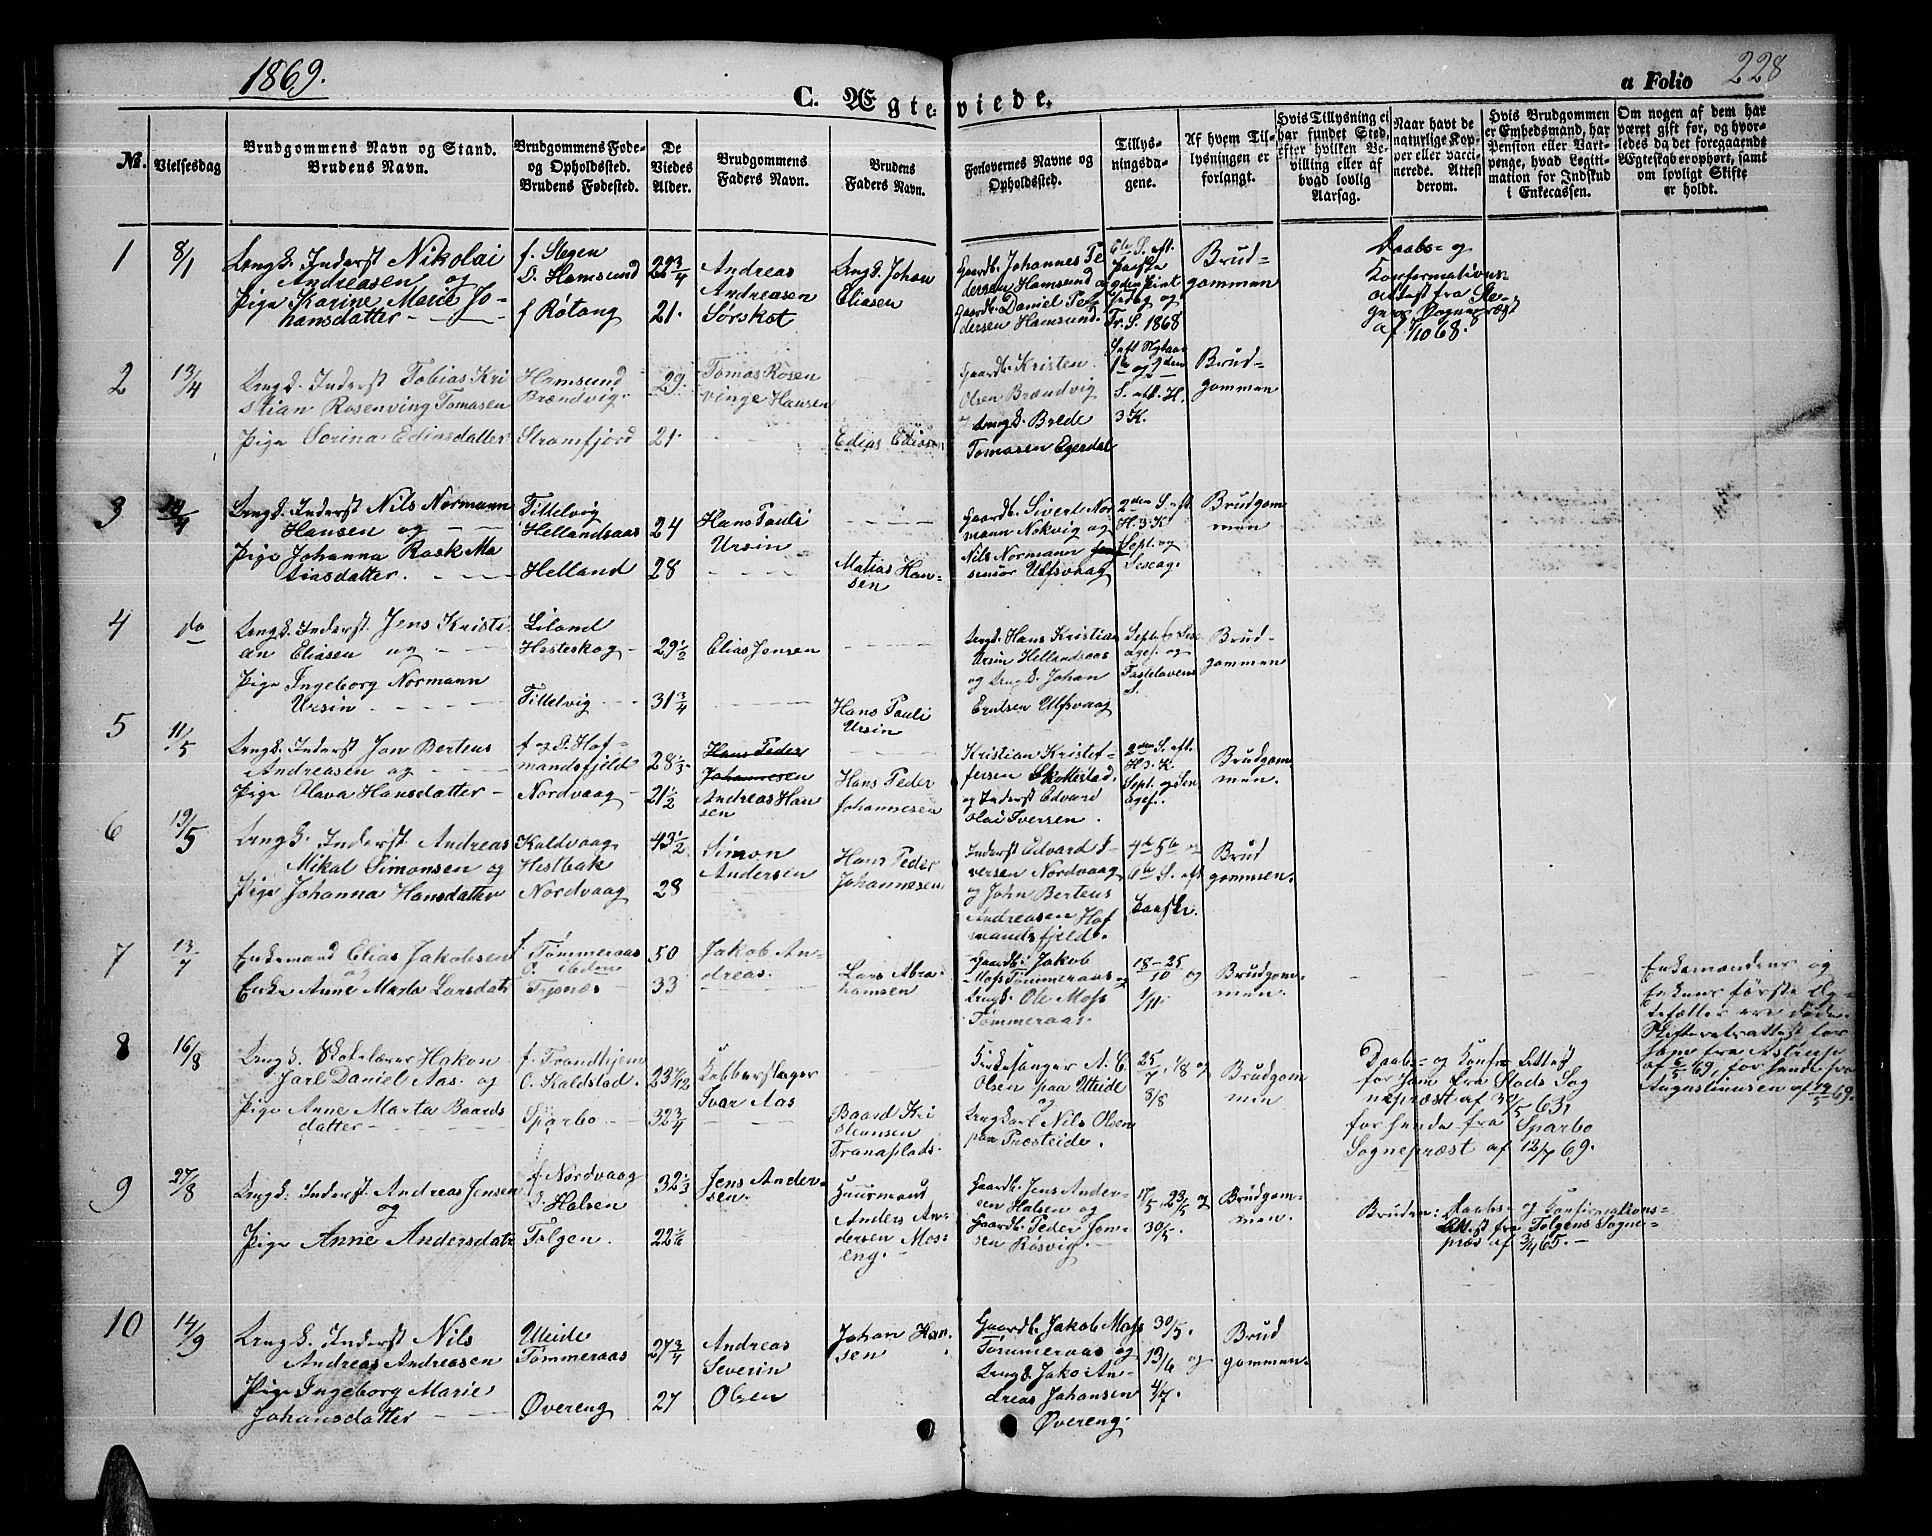 1869.
C. Ægteviede.
a Folio 228
No.
Vielsesdag
Brudgommens Navn og Stand.
Brudens Navn.
Brudgommens Føde-
og Opholdssted.
Brudens Fødested.
De
Viedes
Alder.
Brudgommens
Faders Navn.
Brudens
Faders Navn.
Forlovernes Navne og
Opholdssted.
Tillys-
ningsda-
gene.
Af hvem Til-
lysningen er
forlangt.
Hvis Tillysning ei
har fundet Sted,
efter hvilken Be-
villing eller af
hvad lovlig
Aarsag.
Naar havt de
naturlige Kop-
per eller vacci-
nerede. Attest
derom.
Hvis Brudgommen
er Embedsmand, har
Pension eller Vart-
penge, hvad Legiti-
mation for Indskud
i Enkecassen.
Om nogen af dem har
været gift før, og hvor-
ledes da det foregaaende
Ægteskab er ophørt, samt
om lovligt Skifte
er holdt.
1
8/1
Ungk. Inderst Nikolai
Andreasen og
Pige Karine Marie Jo-
hansdatter
f. Stegen
O. Hamsund
f Røtang
22 3/4
21.
Andreas
Andreasen
Sørskot
Ungk. Johan
Eliasen
Gaardb. Johannes Pe
dersen Hamsund og
Gaardb. Daniel Pe-
dersen Hamsund.
6te S. eft.
Paaske
2den Pint
sedag og
Tr. S. 1868
Brud-
gommen
Daabs- og
Konfirmations-
attest fra Ste-
gens Sognepræst
af 7/10 68.
2
13/4
Ungk. Inderst Tobias Kri
stian Rosenving Tomasen
Pige Sorina Ediasdatter
Hamsund
Brændvig
Stramfjord
29.
21.
Tomas Rosen
vinge Hansen
Edias Ediasen
Gaardb. Kristen
Olsen Brændvig
Ungk. Brede
Tomasen Egerdal
S. eft Nytaar
1te og 2den
S. eft. H.
3 K.
Brud-
gommen
3
19/4
Ungk. Inderst Nils Normann
Hansen og
Pige Johanna Rask Ma
tiasdatter.
Tittelvig
Hellandsaas
Helland
24
28
Hans Pauli
Ursin
Matias Han-
sen
Gaardb. Sivert Nor
mann Nøkvig og
Nils Normann Jen
sensør Ulfsvaag
2den S. eft
H. 3. K.
Sept. og
Sexag.
Brudgom
men
4
do
Ungk. Inderst Jens Kristi
an Eliasen og
Pige Ingeborg Normann
Ursin
Liland
Hesteskog
Tittelvig
29 1/2
31 3/4
Elias Jensen
Hans Pauli
Ursin
Ungk. Hans Kristian
Ursin Hellandsaas
og Ungk. Johan
Eentsen Ulfsvaag
Brud-
gommen
Fastelavens
S.
5
11/5
Ungk. Inderst Jon Berteus
Andreasen og
Pige Olava Hansdatter
f og O. Hof-
mandsfjeld
Nordvaag
28 1/3
21 1/2
Hans Peder
Johannesen
Andreas Han
sen
Hans Peder
Johannesen
Kristian Kristof-
fersen Skottestad
og Inderst Edvard
Olai Iversen.
2den S. eft.
H. 3. K.
Sept. og Sex
agef.
Brudgom
men.
6
19/5
Ungk. Inderst Andreas
Mikal Simonsen og
Pige Johanna Hansdatter
Kaldvaag
Hestbak
Nordvaag
43 1/2
28
Simon
Andersen
Hans Peder
Johannesen
Inderst Edvard I-
versen Nordvaag
og John Berteus
Andreasen Hof
mandsfjeld.
4de 5te og
6te S. eft
Paaske.
Brud
gommen.
7
13/7
Enkemand Elias Jakobsen
og
Enke Anne Marta Larsdatr
f. Tømmeraas
O. ibidem
Tysnæs
50
33
Jakob An-
dreas.
Lars Abra
hamsen
Gaardb. Jakob
Mosf Tømmeraas og
Ungk. Ole Mosf
Tømmeraas.
18 - 25
/10 og
1/11.
Brudgom-
men.
Enkemandens og
Enkens første Æg-
tefæller ere døde.
Skifteretsattest for
ham fra
af 6/5 69, for hende fra
Augustinusen af 12/5 69.
8
16/8
Ungk. Skolelærer Hakon
Jarl Daniel Aas. og
Pige Anne Marta Baards
datter
f. Trondhjem
O. Kaldstad.
Sparbo
23 1/12
32 3/4
Kobberslager
Ivar Aas
Baard Kri
stiansen
Tranaplads.
Kirkesanger A. C.
Olsen paa Uteide
og
Ungkarl Nils Olsen
paa Presteide.
25/7, 1/8 og
8/8
Brudgom
men
Daabs- og Konfr. Attest
for ham fra Stods Sog
nepræst af 30/5 63,
for hende fra Sparbo
Sognepræst af 12/7 69.
9
27/8
Ungk. Inderst Andreas Jensen
og
Pige Anne Andersdatr
f. Nordvaag
O. Halsen
Tolgen.
32 1/3
22 1/6
Jens Ander-
sen.
Huusmand
Anders An-
dersen Mos-
eng.
Gaardb. Jens Ander-
sen Halsen og
Gaardb. Peder Jen-
sen Røsvig.
17/5, 23/5 og
30/5.
Brudgom-
men.
Bruden: Daabs- og Konfirmations-
attest fra Tolgens Sogne-
præs af 3/4 65.
10
14/9
Ungk. Inderst Nils
Andreas Andreasen
Pige Ingeborg Marie
Johansdatter
Uteide
Tømmeraas
Øvereng
27 3/4
27
Andreas
Severin
Olsen
Johan Han-
sen
Gaardb. Jakob Mosf
Tømmeraas og
Ungk. Jako An-
dreas Johansen
Øvereng.
30/5.
13/6 og
4/7.
Brud
gommen.